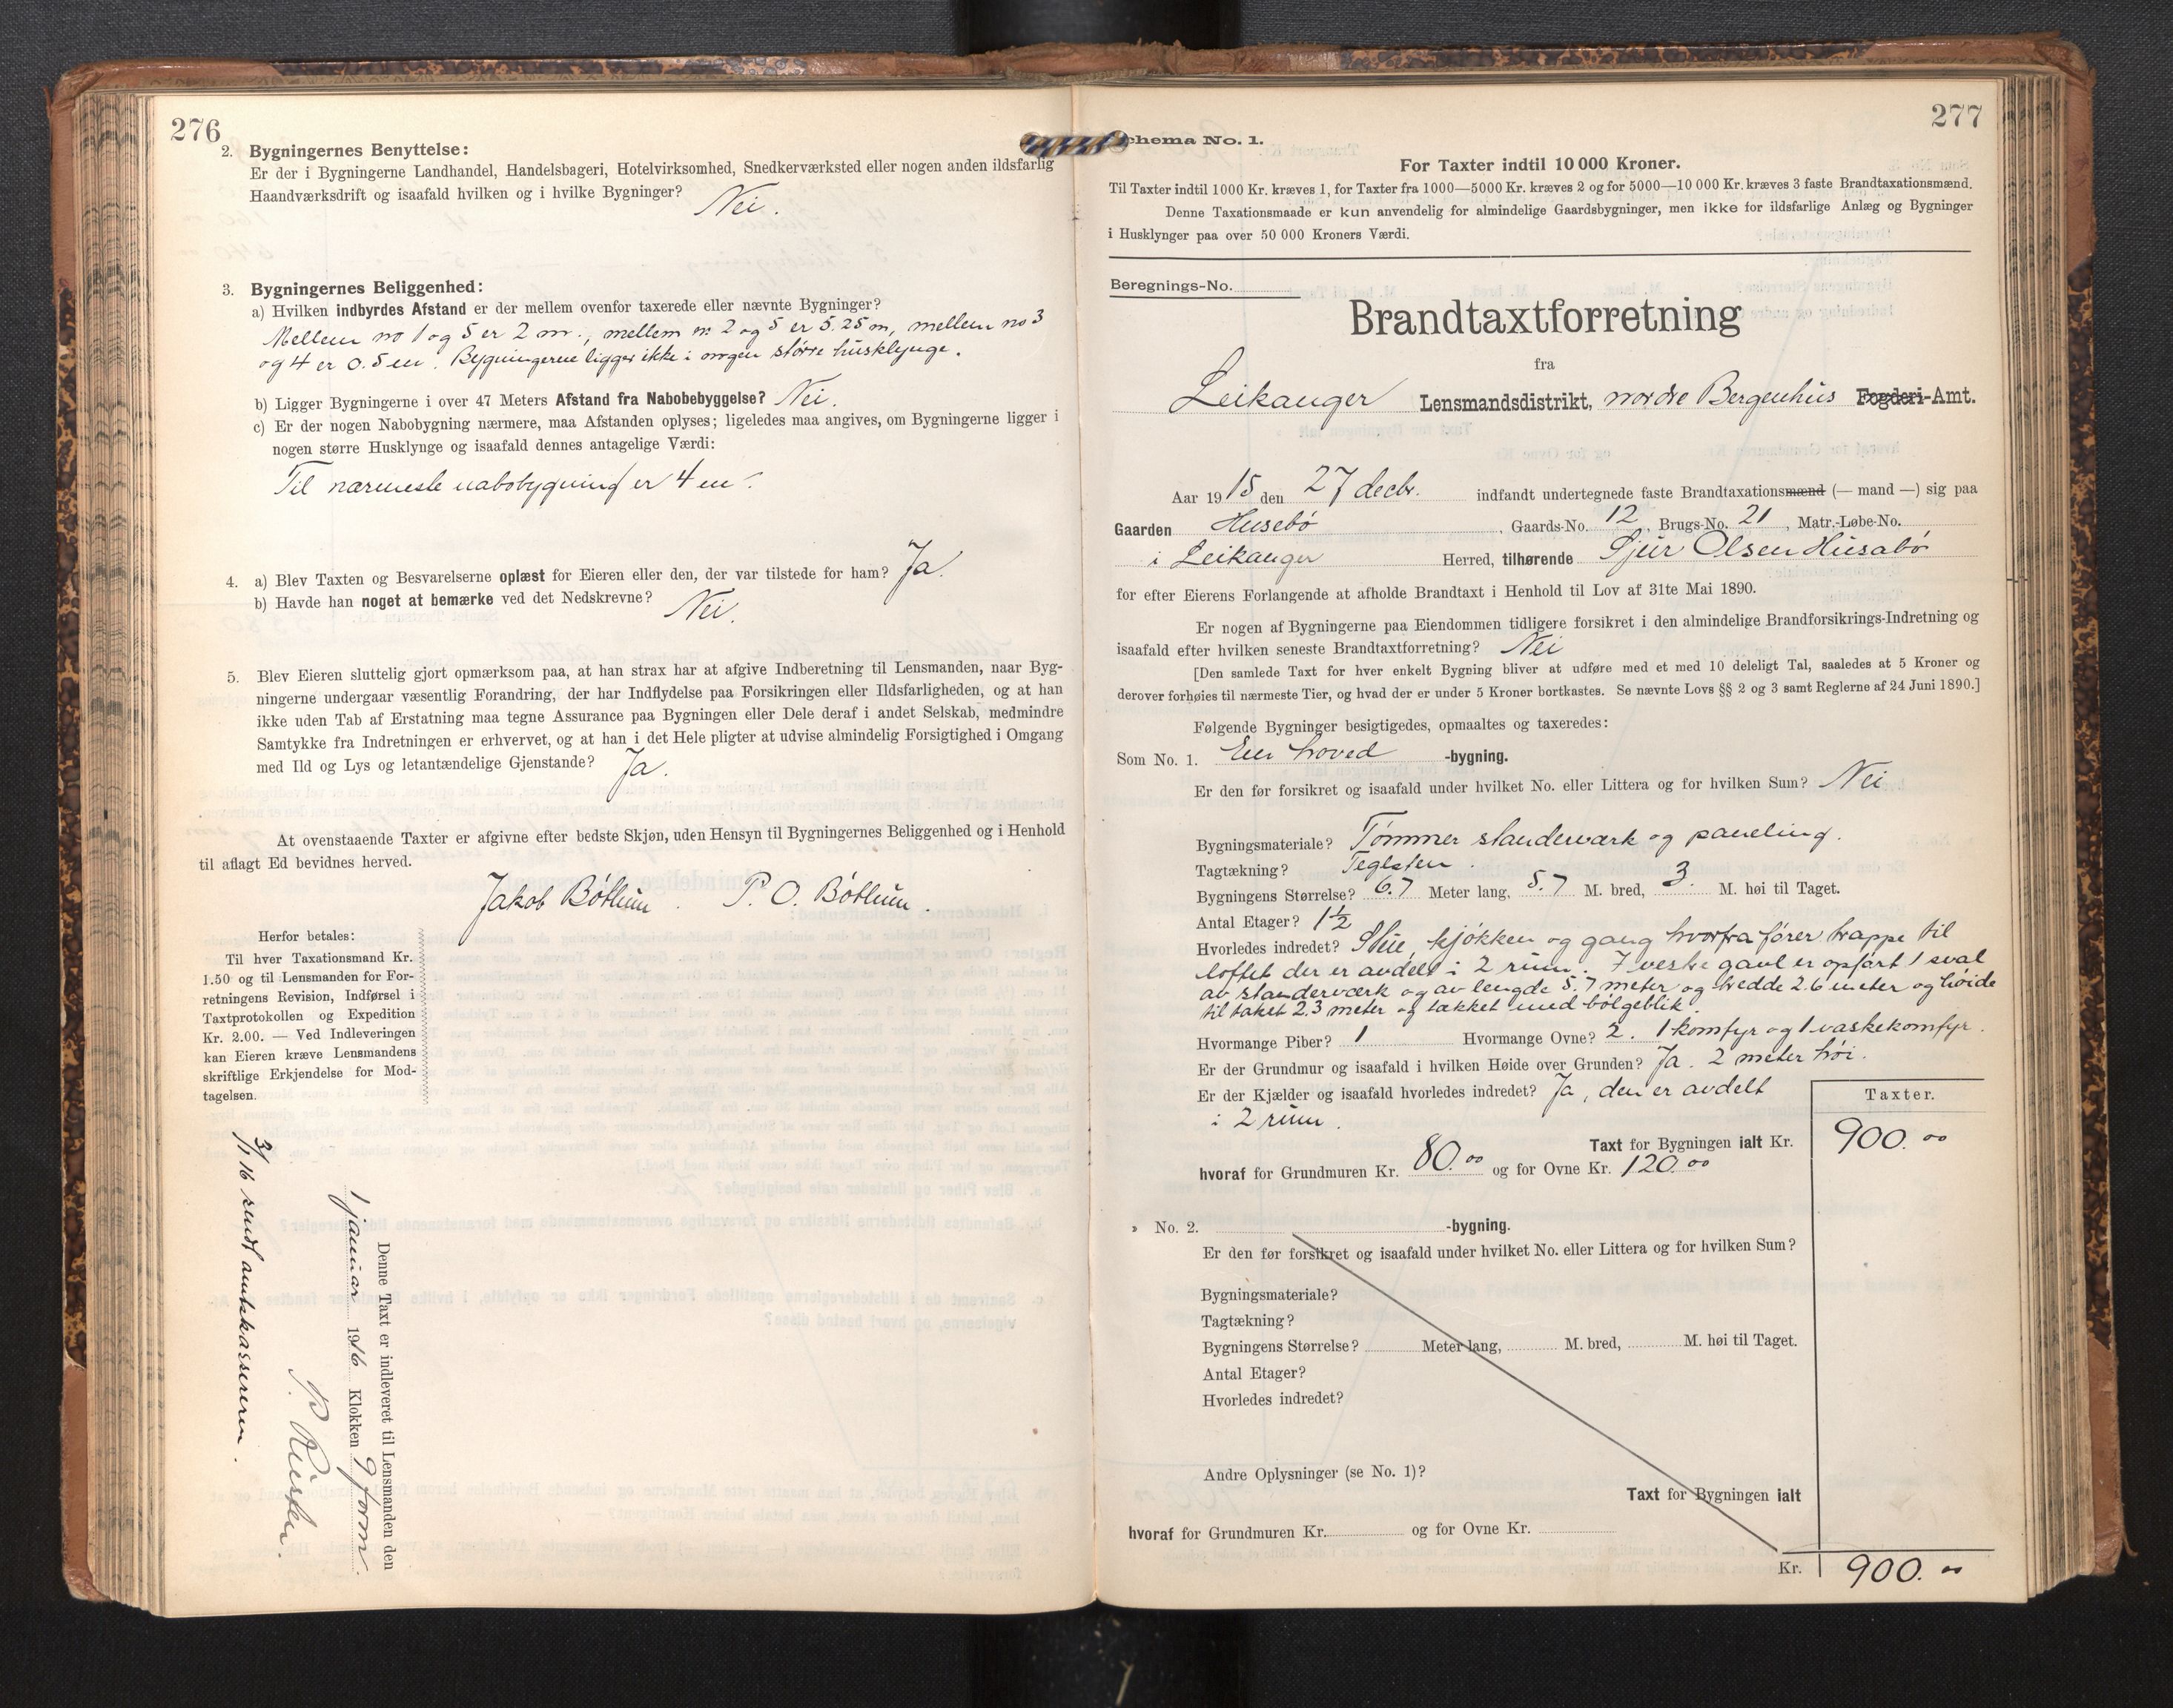 276
2. Bygningernes Benyttelse:
Er der i Bygningerne Landhandel, Handelsbageri, Hotelvirksomhed, Snedkerværksted eller nogen anden ildsfarlig
Haandværksdrift og isaafald hvilken og i hvilke Bygninger? Nei.
3. Bygningernes Beliggenhed:
a) Hvilken indbyrdes Afstand er der mellem ovenfor taxerede eller nævnte Bygninger?
Mellem no 1 og 5 er 2 m., mellem nr 2 og 5 er 5.25 m, mellem no 3
og 4 er 0.5 m. Bygningerne ligger ikke i nogen større husklynge.
b) Ligger Bygningerne i over 47 Meters Afstand fra Nabobebyggelse? Nei.
c) Er der nogen Nabobygning nærmere, maa Afstanden oplyses; ligeledes maa angives, om Bygningerne ligger i
nogen større Husklynge og isaafald dennes antagelige Værdi:
Til nærmeste nabobygning er 4 m.
4. a) Blev Taxten og Besvarelserne oplæst for Eieren eller den, der var tilstede for ham? Ja.
b) Havde han noget at bemærke ved det Nedskrevne? Nei.
5. Blev Eieren sluttelig gjort opmærksom paa, at han strax har at afgive Indberetning til Lensmanden, naar Byg-
ningerne undergaar væsentlig Forandring, der har Indflydelse paa Forsikringen eller Ildsfarligheden, og at han
ikke uden Tab af Erstatning maa tegne Assurance paa Bygningen eller Dele deraf i andet Selskab, medmindre
Samtykke fra Indretningen er erhvervet, og at han i det Hele pligter at udvise almindelig Forsigtighed i Omgang
med Ild og Lys og letantændelige Gjenstande? Ja.
At ovenstaaende Taxter er afgivne efter bedste Skjøn, uden Hensyn til Bygningernes Beliggenhed og i Henhold
til aflagt Ed bevidnes herved.
Jakob Bøthun. P. O. Bøthun.
Herfor betales:
Til hver Taxationsmand Kr.
1.50 og til Lensmanden for For-
retningens Revision, Indførsel i
Taxtprotokollen og Expedition
Kr. 2.00. — Ved Indleveringen
kan Eieren kræve Lensmandens
skriftlige Erkjendelse for Mod-
tagelsen.
Denne Taxt er indleveret til Lensmanden den
1 januar 1916 Klokken 9 form.
3/1 16 sendt amtskassereren.
277
Schema No. 1.
For Taxter indtil 10 000 Kroner.
Til Taxter indtil 1000 Kr. kræves 1, for Taxter fra 1000—5000 Kr. kræves 2 og for 5000—10 000 Kr. kræves 3 faste Brandtaxationsmænd.
Denne Taxationsmaade er kun anvendelig for almindelige Gaardsbygninger, men ikke for ildsfarlige Anlæg og Bygninger
i Husklynger paa over 50 000 Kroners Værdi.
Beregnings-No.
Brandtaxtforretning
fra
Leikanger Lensmandsdistrikt, nordre Bergenhus Fogderi-Amt.
Aar 1915 den 27 decbr. indfandt undertegnede faste Brandtaxationsmænd (— mand —) sig paa
Gaarden Husebø, Gaards-No. 12, Brugs-No. 21, Matr.-Løbe-No.
i Leikanger Herred, tilhørende Sjur Olsen Husabø
for efter Eierens Forlangende at afholde Brandtaxt i Henhold til Lov af 31te Mai 1890.
Er nogen af Bygningerne paa Eiendommen tidligere forsikret i den almindelige Brandforsikrings-Indretning og
isaafald efter hvilken seneste Brandtaxtforretning? Nei
[Den samlede Taxt for hver enkelt Bygning bliver at udføre med et med 10 deleligt Tal, saaledes at 5 Kroner og
derover forhøies til nærmeste Tier, og hvad der er under 5 Kroner bortkastes. Se nævnte Lovs §§ 2 og 3 samt Reglerne af 24 Juni 1890.]
Følgende Bygninger besigtigedes, opmaaltes og taxeredes:
Som No. 1. En hoved -bygning.
Er den før forsikret og isaafald under hvilket No. eller Littera og for hvilken Sum? Nei
Bygningsmateriale? Tømmer standerværk og paneling.
Tagtækning? Teglsten.
Bygningens Størrelse? 6.7 Meter lang, 5.7 M. bred, 3. M. høi til Taget.
Antal Etager? 1½
Hvorledes indredet? Stue, kjøkken og gang hvorfra fører trappe til
loftet der er avdelt i 2 rum. I vestre gavl er opført 1 sval
av standerværk og av lengde 5.7 meter og bredde 2.6 meter og høide
til taket 2.3 meter og tækket med bølgeblik.
Hvormange Piber? 1 Hvormange Ovne? 2. 1 komfyr og 1 vaskekomfyr.
Er der Grundmur og isaafald i hvilken Høide over Grunden? Ja. 2 meter høi.
Er der Kjælder og isaafald hvorledes indredet? Ja, den er avdelt
i 2 rum.
Taxter.
Taxt for Bygningen ialt Kr. 900.00
hvoraf for Grundmuren Kr. 80.00 og for Ovne Kr. 120.00
» No. 2. -bygning.
Er den før forsikret og isaafald under hvilket No. eller Littera og for hvilken Sum?
Bygningsmateriale?
Tagtækning?
Bygningens Størrelse? Meter lang, M. bred, M. høi til Taget.
Antal Etager?
Hvorledes indredet?
Andre Oplysninger (se No. 1)?
Taxt for Bygningen ialt
hvoraf for Grundmuren Kr. og for Ovne Kr.
Kr. 900.00